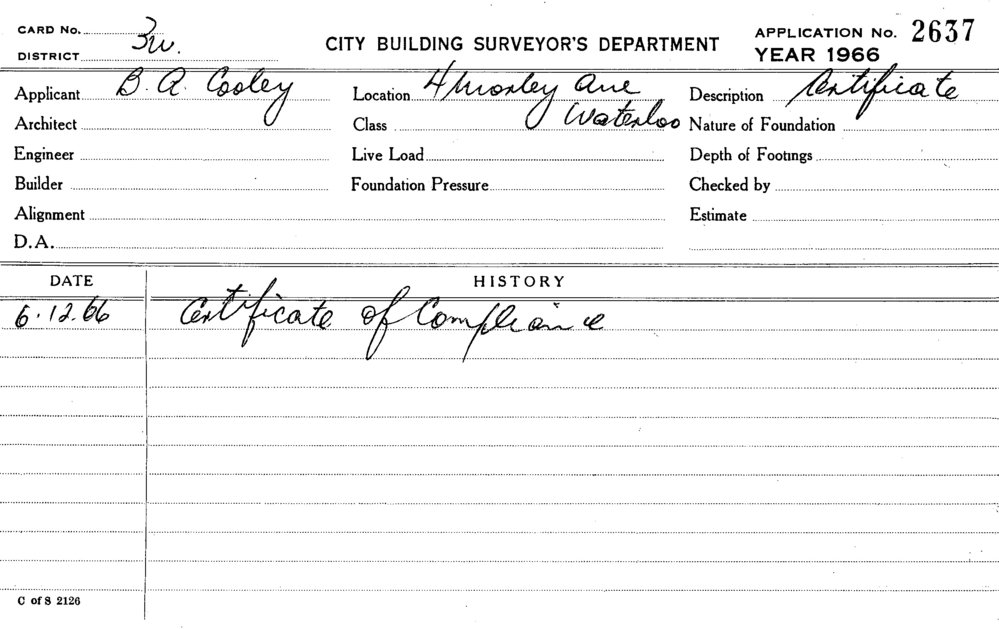 CARD No. CITY BUILDING SURVEYOR'S DEPARTMENT APPLICATION No. 2637
DISTRICT 3w. YEAR 1966
Applicant B. A. Cooley Location 4 Morley Ave Description Certificate
Architect Class Waterloo Nature of Foundation
Engineer Live Load Depth of Footings
Builder Foundation Pressure Checked by
Alignment Estimate
D.A.
DATE HISTORY
6.12.66 Certificate of Compliance
C of S 2126